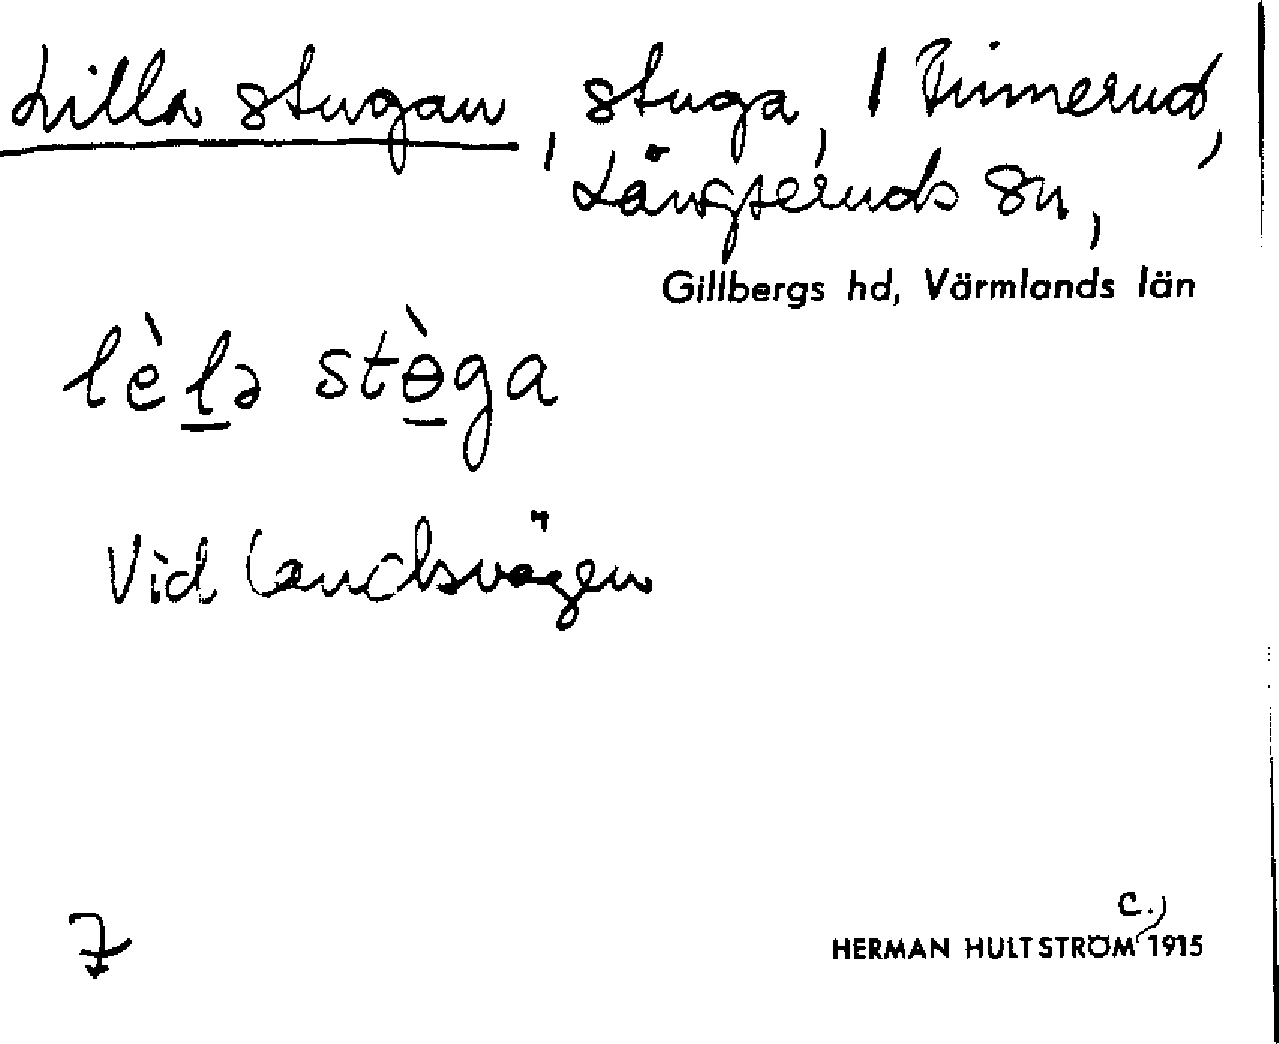 Lilla stugan, stuga, / Finnerud,
Långseruds sn,
Gillbergs hd, Värmlands län
lèlə stɵ̀ga
Vid landsvägen
7
c.,
HERMAN HULTSTRÖM 1915